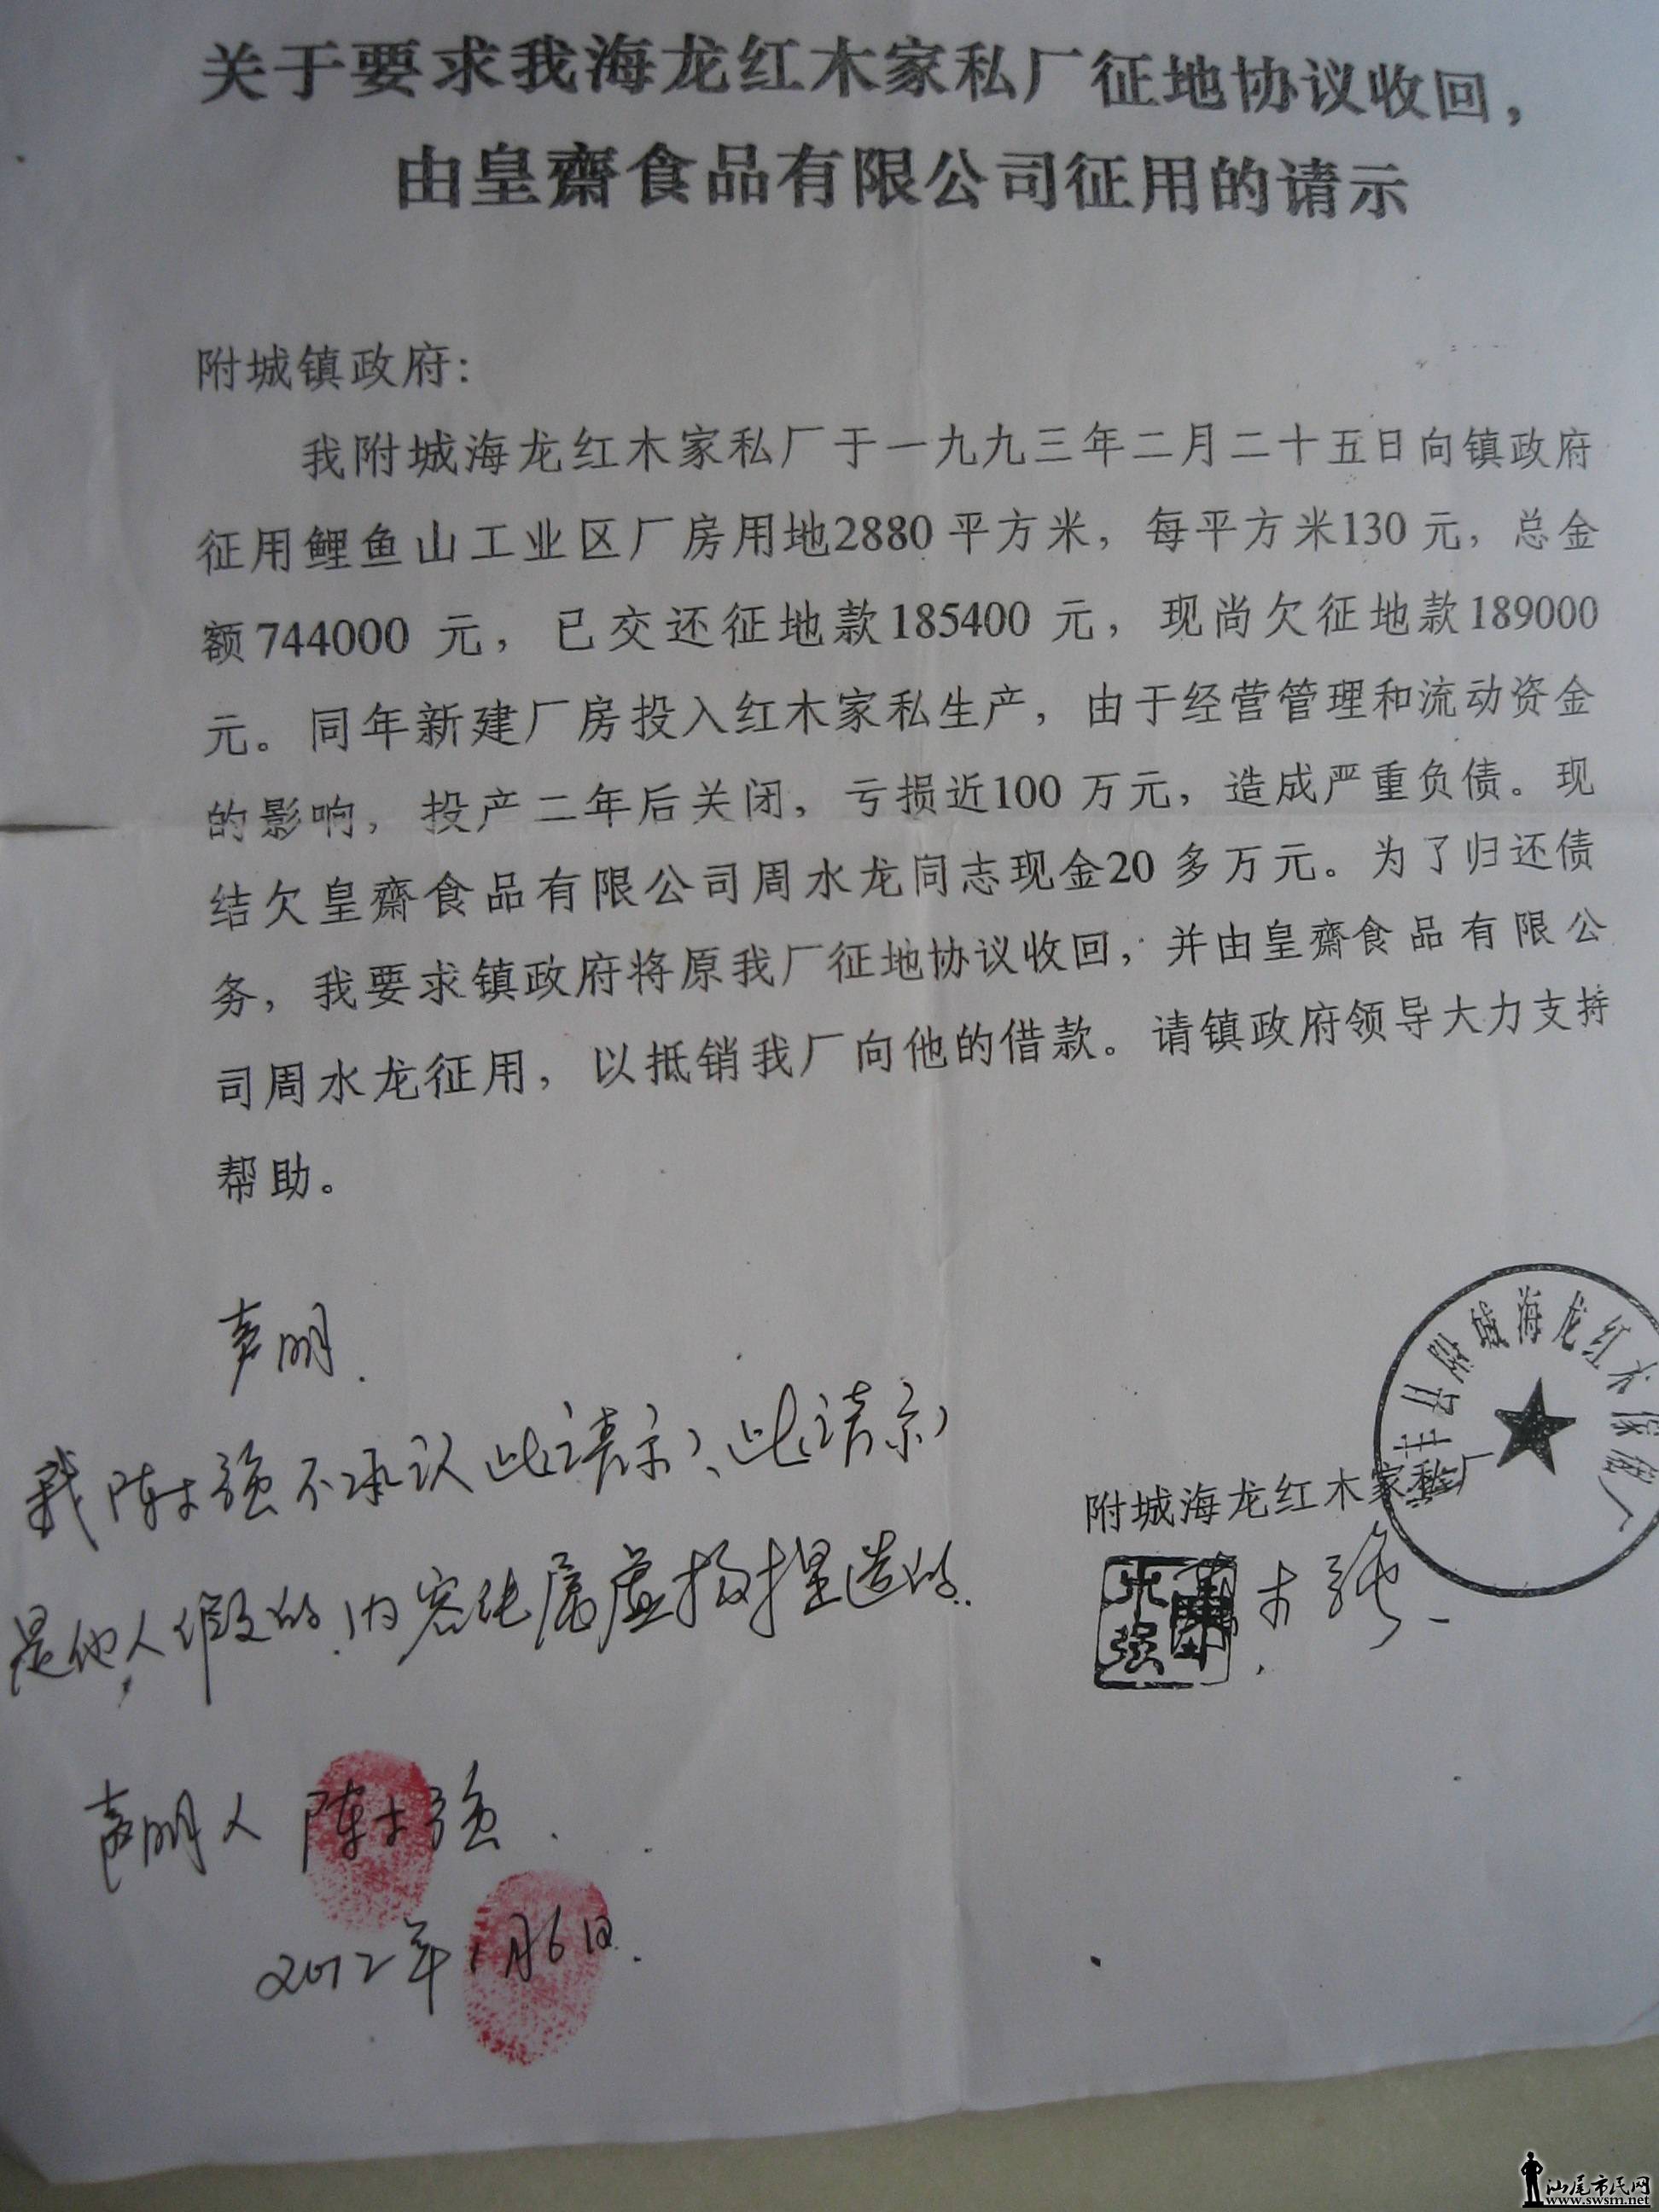 关于要求我海龙红木家私厂征地协议收回，
由皇齋食品有限公司征用的请示
附城镇政府：
我附城海龙红木家私厂于一九九三年二月二十五日向镇政府
征用鲤鱼山工业区厂房用地2880平方米，每平方米130元，总金
额744000元，已交还征地款185400元，现尚欠征地款189000
元。同年新建厂房投入红木家私生产，由于经营管理和流动资金
的影响，投产二年后关闭，亏损近100万元，造成严重负债。现
结欠皇齋食品有限公司周水龙同志现金20多万元。为了归还债
务，我要求镇政府将原我厂征地协议收回，并由皇齋食品有限公
司周水龙征用，以抵销我厂向他的借款。请镇政府领导大力支持
帮助。
声明
我陈木强不承认此请示、此请示
是他人假的，内容纯属虚构捏造的.
声明人 陈木强
2012年1月6日.
附城海龙红木家私厂
木强
丰县附城海龙红木傢俬厂
汕尾市民网
www.swsm.net